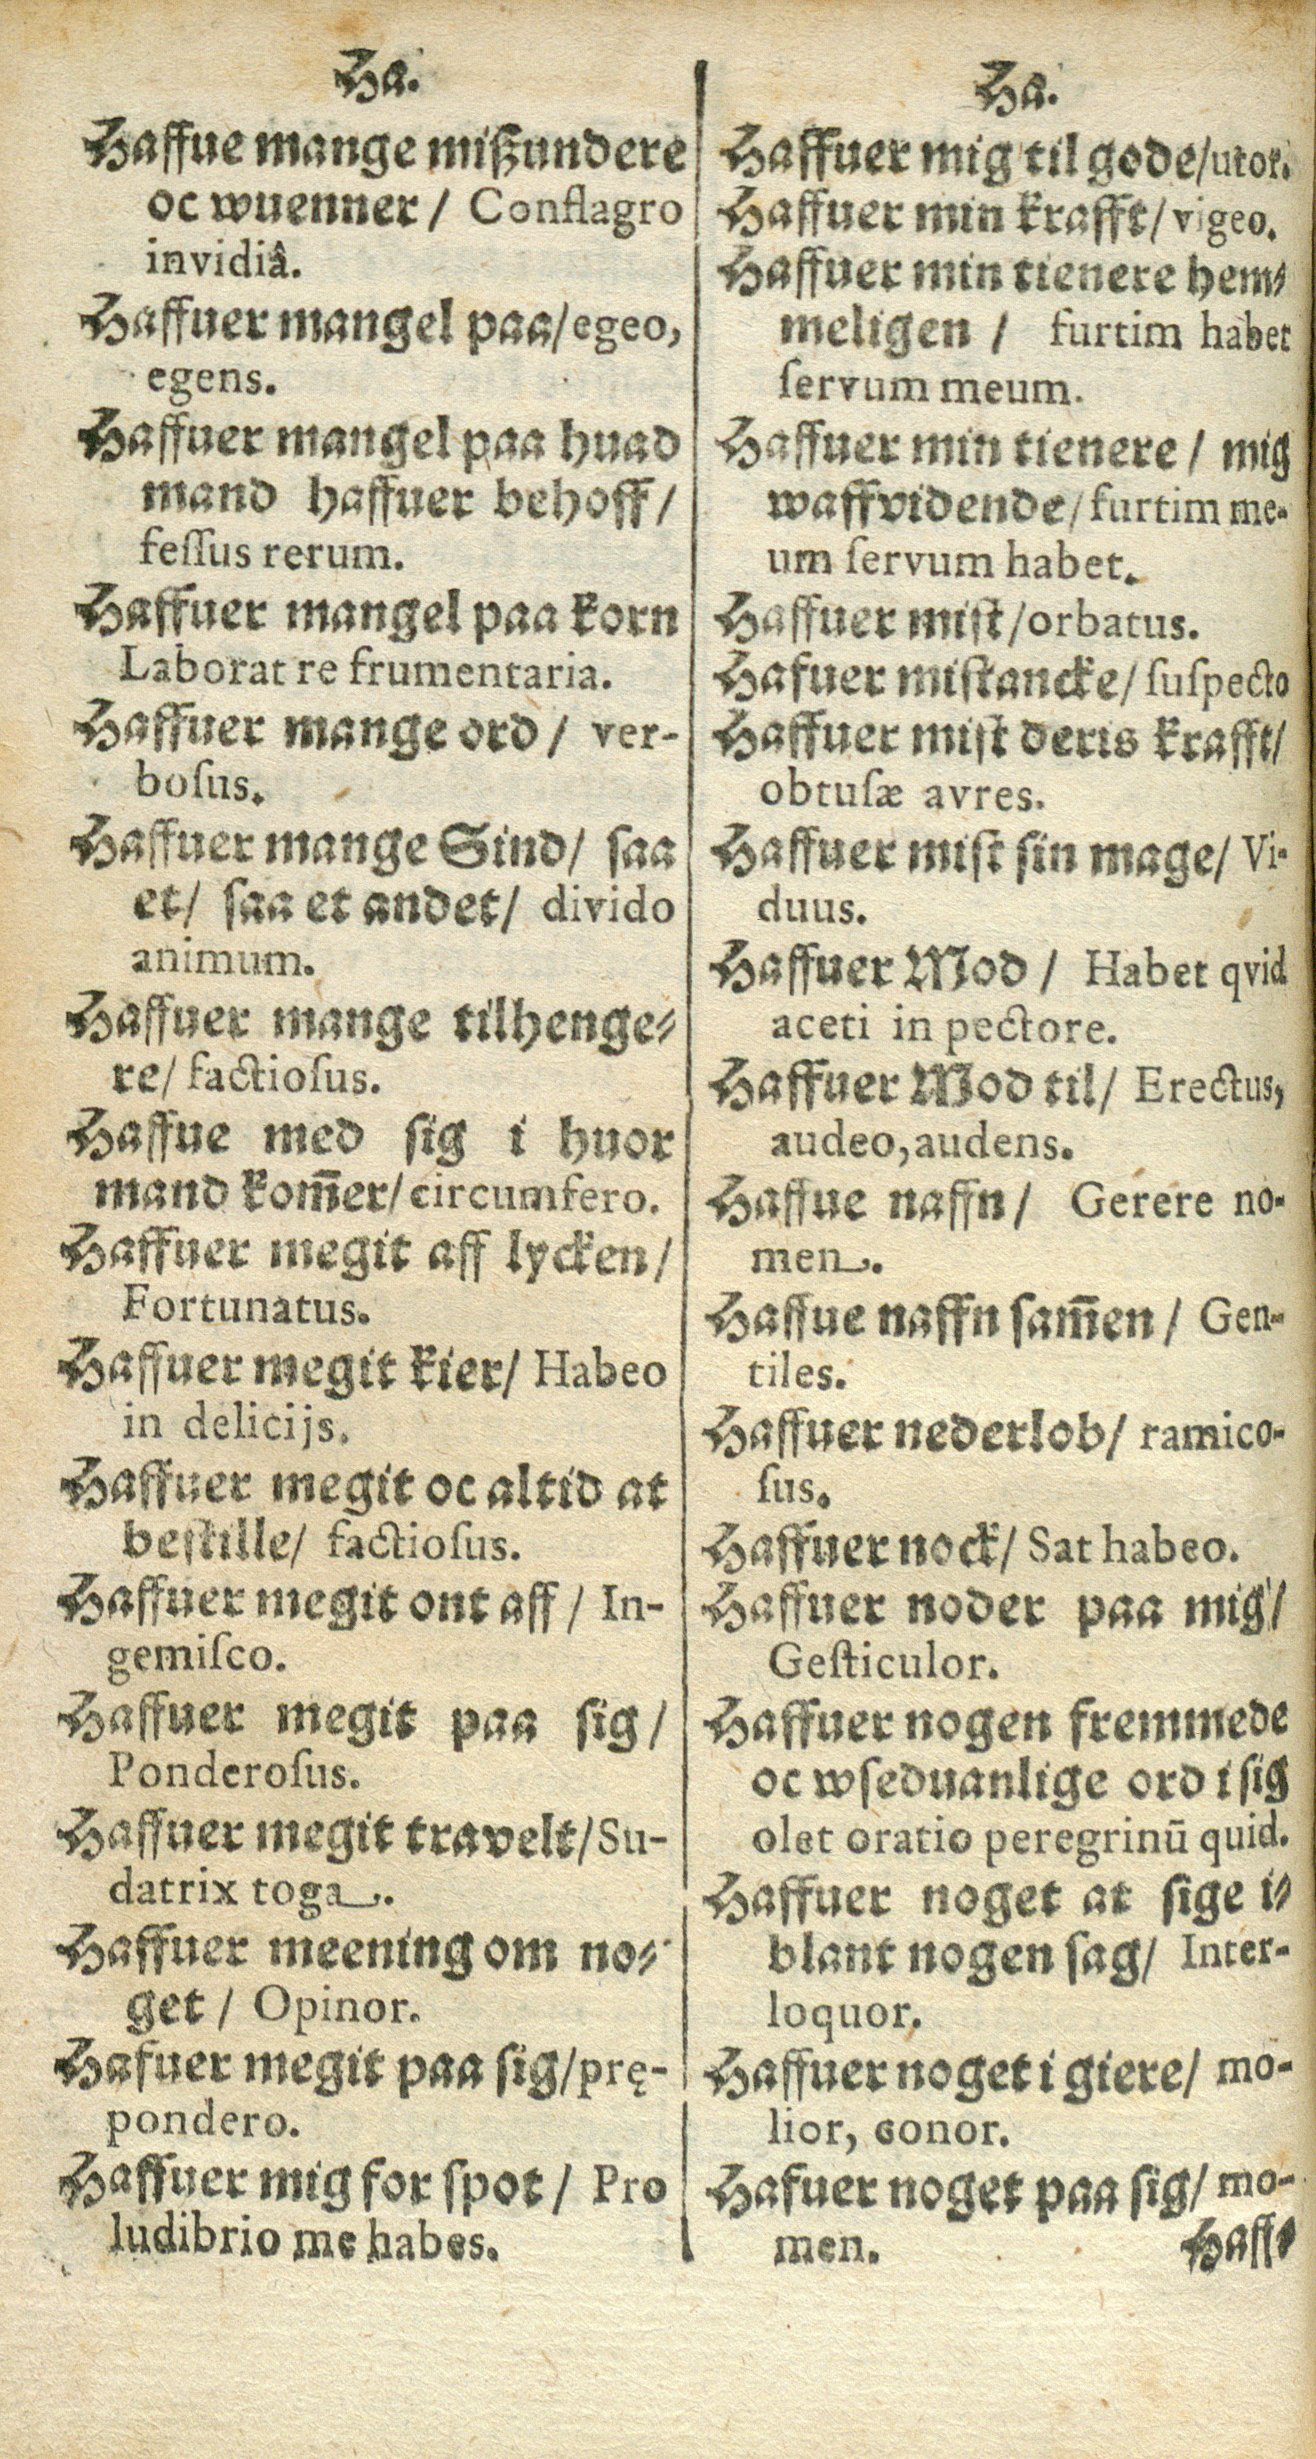 Ha.
Haffue mange mißundere
oc wuenner / Conflagro
invidiâ.
Haffuer mangel paa/egeo,
egens.
Haffuer mangel paa huad
mand haffuer behoff /
feſſus rerum.
Haffuer mangel paa korn
Laborat re frumentaria.
Haffuer mange ord / ver-
boſus.
Haffuer mange Sind/ ſaa
et/ ſaa et andet/ divido
animum.
Haffuer mange tilhenge⸗
re/ factioſus.
Haffue med ſig i huor
mand kom̃er/ circumfero.
Haffuer megit aff lycken /
Fortunatus.
Haffuer megit kier/ Habeo
in delicijs.
Haffuer megit oc altid at
beſtille/ factioſus.
Haffuer megit ont aff / In-
gemiſco.
Haffuer megit paa ſig /
Ponderoſus.
Haffuer megit travelt/Su-
datrix toga.
Haffuer meening om no⸗
get / Opinor.
Hafuer megit paa ſig/prę-
pondero.
Haffuer mig for ſpot / Pro
ludibrio me habes.
Ha.
Haffuer mig til gode/utor.
Haffuer min krafft/ vigeo.
Haffuer min tienere hem⸗
meligen / furtim habet
ſervum meum.
Haffuer min tienere / mig
waffvidende/ furtim me-
um ſervum habet.
Haffuer miſt /orbatus.
Hafuer miſtancke/ ſuſpecto
Haffuer miſt deris krafft/
obtuſæ avres.
Haffuer miſt ſin mage/ Vi-
duus.
Haffuer Mod / Habet qvid
aceti in pectore.
Haffuer Mod til/ Erectus,
audeo, audens.
Haffue naffn / Gerere no-
men.
Haffue naffn ſam̃en / Gen-
tiles.
Haffuer nederlob/ ramico-
ſus.
Haffuer nock/ Sat habeo.
Haffuer noder paa mig/
Geſticulor.
Haffuer nogen fremmede
oc wſeduanlige ord i ſig
olet oratio peregrinū quid.
Haffuer noget at ſige i⸗
blant nogen ſag/ Inter-
loquor.
Haffuer noget i giere/ mo-
lior, conor.
Hafuer noget paa ſig/ mo-
men.
Haff⸗